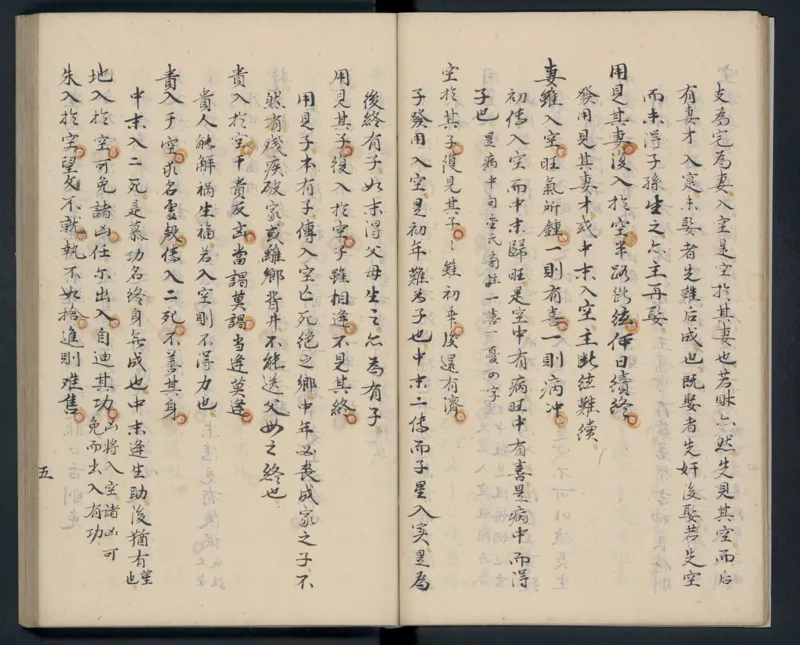 支為宅為妻入空是空於其妻也若財亦然先見其空而后
有妻才入空未娶者先難后成也既娶者先奸後娶若先空
而未得子孫生之亦主再娶
用見其妻後入於空半路斷絃仲日續終
發用見其妻才或中末入空主斷絃難續
妻雖入空旺氣所鍾一則有喜一則病冲
初傳入空而中末歸旺是空中有病旺中有喜是病中而得
子也 是病中句金氏旁註一喜一憂の字
空於其子復見其子〻雖初年後還有濟
子發用入空是初年難為子也中末二傳而子星入实是為
後終有子如末得父母生之亦為有子
用見其子復入於空子雖相逢不見其終
用見子本有子傳入空亡死絕之鄉中年必喪成家之子不
然有殘疾破家或離鄉背井不能送父母之終也
貴入於空干貴反高當謁莫謁當逢莫逢
貴人能解禍生福若入空則不得力也
貴入于空求名虛然傳入二死不善其身
中末入二死是慕功名終身無成也中末逢生助後猶有望也
地入於空可免諸凶仕尔出入自迪其功 凶將入空諸凶可免而出入有功
朱入於空望文不就執不如捨進則难售
五